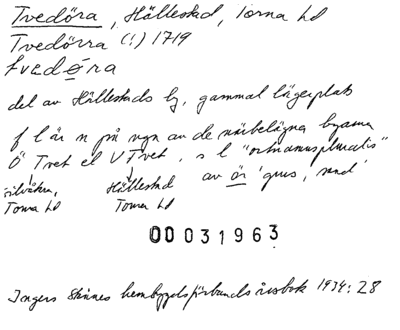 Tvedöra, Hällestad, Torna hd
Tvedörra (!) 1719
tvedǿra
del av Hällestads by, gammal lägerplats
f l är n på ngn av de närbelägna byarna
Ö Tvet el V Tvet, s l "ortnamnspluralis"
Silvåkra, Hällestad av ör 'grus, sand'
Torna hd Torna hd
00031963
Ingers Skånes hembygdsförbunds årsbok 1934:28